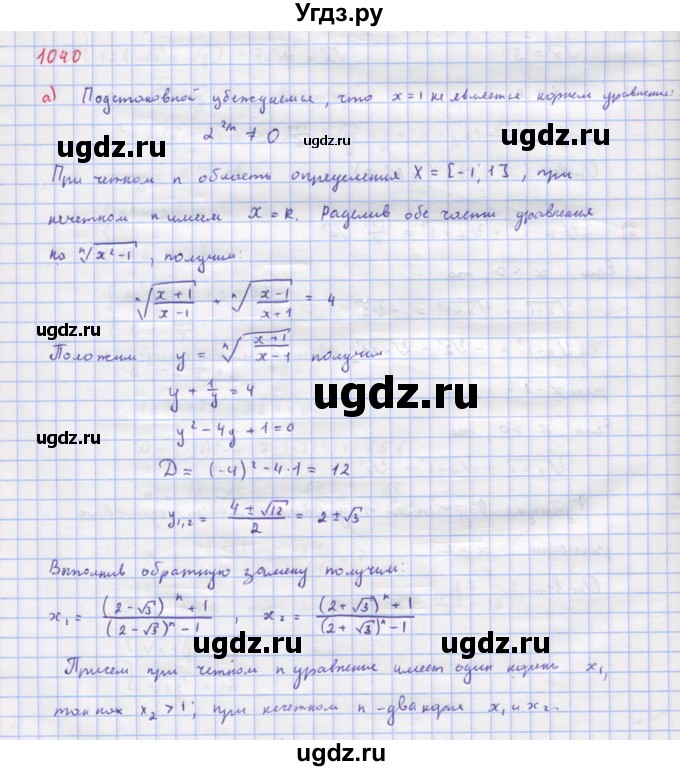 Угдз.ру
1040
а) Подстановкой убеждаемся, что x=1 не является корнем уравнения:
2^{2/n} ≠ 0
ugdz.ru
ugdz.ru
При четном n область определения X = [-1; 1], при
нечетном n имеем X = R. Разделив обе части уравнения
на ⁿ√(x²-1), получим:
ugdz.ru
ⁿ√((x+1)/(x-1)) + ⁿ√((x-1)/(x+1)) = 4
ugdz.ru
Положим y = ⁿ√((x+1)/(x-1)) получим
ugdz.ru
y + 1/y = 4
ugdz.ru
y² - 4y + 1 = 0
ugdz.ru
D = (-4)² - 4·1 = 12
y₁,₂ = (4 ± √12)/2 = 2 ± √3
ugdz.ru
Выполнив обратную замену получим:
x₁ = ((2-√3)ⁿ + 1)/((2-√3)ⁿ - 1), x₂ = ((2+√3)ⁿ + 1)/((2+√3)ⁿ - 1)
ugdz.ru
ugdz.ru
Причем при четном n уравнение имеет один корень x₁,
так как x₂ > 1; при нечетном n - два корня x₁ и x₂.
ugdz.ru